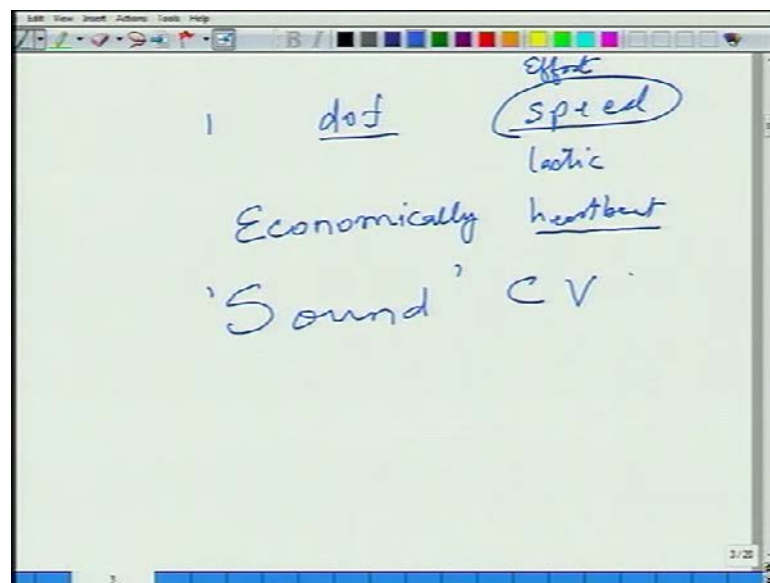 Edit View Insert Actions Tools Help
B I
Effort
1 dof speed
lactic
Economically heartbeat
'Sound' CV
3/20
3